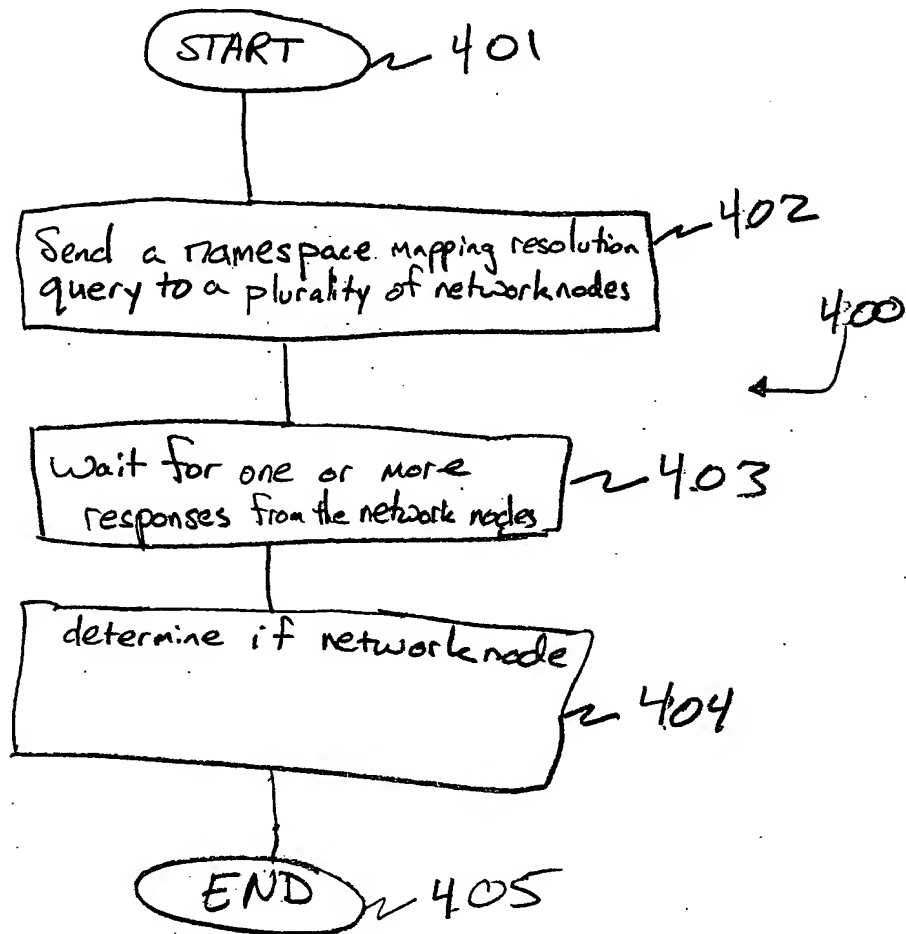 START 401
Send a namespace mapping resolution
query to a plurality of network nodes
402
400
wait for one or more
responses from the network nodes
403
determine if network node
404
END 405